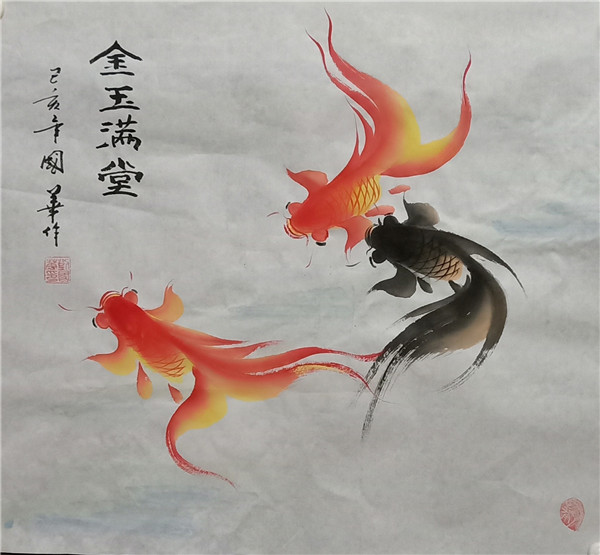 金玉满堂
己亥年國華作